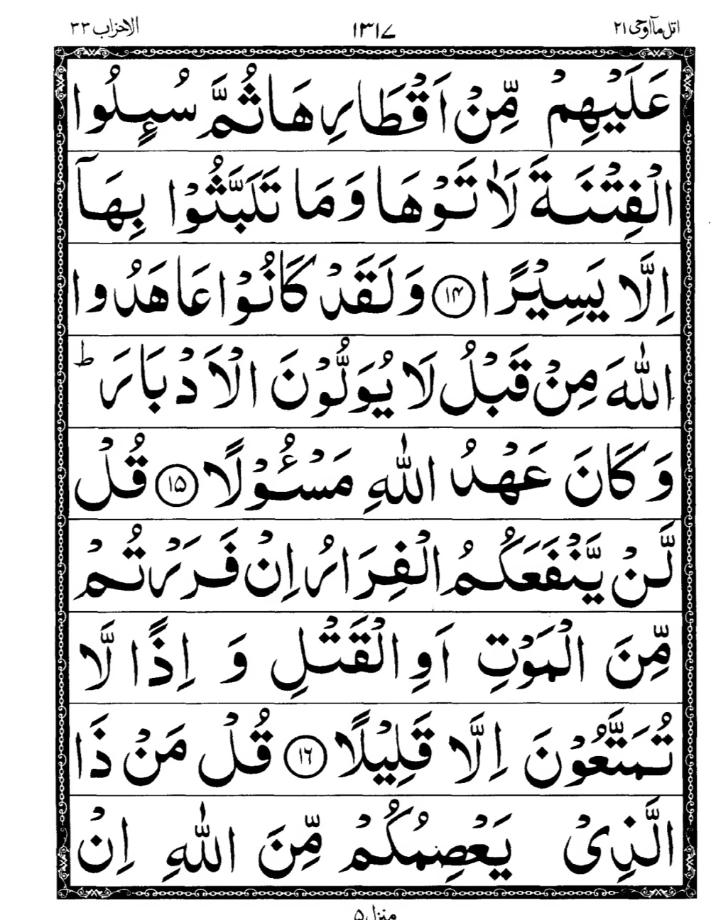 اتل مآ اوحی ۲۱ ۱۳۱۷ الاحزاب ۳۳
عَلَیْهِمْ مِّنْ اَقْطَارِهَا ثُمَّ سُىِٕلُوا
الْفِتْنَةَ لَاٰتَوْهَا وَ مَا تَلَبَّثُوْا بِهَاۤ
اِلَّا یَسِیْرًا ۱۴ وَ لَقَدْ كَانُوْا عَاهَدُوا
اللّٰهَ مِنْ قَبْلُ لَا یُوَلُّوْنَ الْاَدْبَارَ ؕ
وَ كَانَ عَهْدُ اللّٰهِ مَسْـُٔوْلًا ۱۵ قُلْ
لَّنْ یَّنْفَعَكُمُ الْفِرَارُ اِنْ فَرَرْتُمْ
مِّنَ الْمَوْتِ اَوِ الْقَتْلِ وَ اِذًا لَّا
تُمَتَّعُوْنَ اِلَّا قَلِیْلًا ۱۶ قُلْ مَنْ ذَا
الَّذِیْ یَعْصِمُكُمْ مِّنَ اللّٰهِ اِنْ
منزل ۵